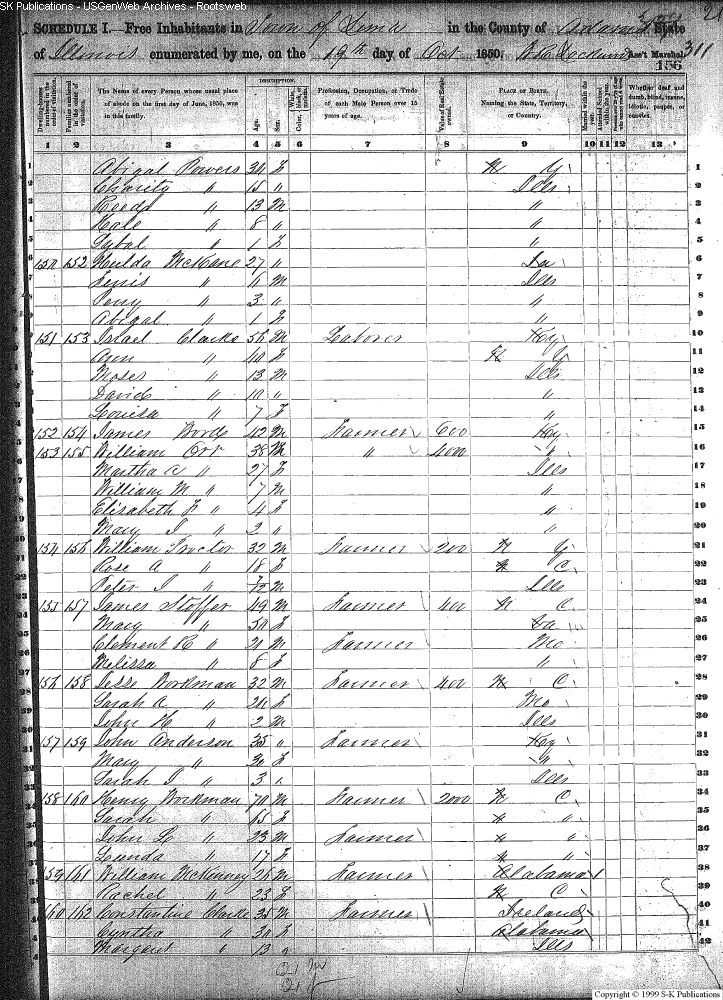 SK Publications - USGenWeb Archives - Rootsweb
SCHEDULE I.—Free Inhabitants in Town of Lima in the County of Adams State
of Illinois enumerated by me, on the 19th day of Oct 1850. Ass't Marshal. 311
156
DESCRIPTION.
Dwelling-houses numbered in the order of visitation.
Families numbered in the order of visitation.
The Name of every Person whose usual place of abode on the first day of June, 1850, was in this family.
Age.
Sex.
White, black, or mulatto.
Color,
Profession, Occupation, or Trade of each Male Person over 15 years of age.
Value of Real Estate owned.
PLACE OF BIRTH. Naming the State, Territory, or Country.
Married within the year.
Attended School within the year.
Whether deaf and dumb, blind, insane, idiotic, pauper, or convict.
1 2 3 4 5 6 7 8 9 10 11 12 13
1 Abigal Powers 30 F N Y 1
2 Charity " 15 " Ills 2
3 Reed " 13 M " 3
4 " 8 " " 4
5 Sybal " 1 F " 5
6 150 152 Hulda McKane 27 " Ia 6
7 " M Ills 7
8 Perry " 3 " " 8
9 Abigal " 1 F " 9
10 151 153 Israel Clarke M Laborer Ky 10
11 Ann " 40 F N Y 11
12 Moses " 13 M Ills 12
13 David " 10 " " 13
14 Louisa " 7 F " 14
15 152 154 James 42 M Farmer 600 Ky 15
16 153 155 William Orr 38 M " 400 " 16
17 Martha A " 27 F Ills 17
18 William M " 7 M " 18
19 Elisabeth F " 4 F " 19
20 Mary J " 2 " " 20
21 154 156 William Proctor 32 M Farmer 200 N Y 21
22 Rose A " 18 F N C 22
23 Peter J " M Ills 23
24 155 157 James Stoffer 49 M Farmer 400 N C 24
25 Mary " 50 F 25
26 Clement R " 21 M Farmer Mo 26
27 Melissa " 8 F " 27
28 156 158 Jesse Workman 32 M Farmer 400 N C 28
29 Sarah A " 24 F Mo 29
30 John H " 2 M Ills 30
31 157 159 John Anderson 35 " Farmer Ky 31
32 Mary " F " 32
33 Sarah J " 3 " Ills 33
34 158 160 Henry Workman 70 M Farmer 2000 N C 34
35 Sarah " 65 F " " 35
36 John L " 23 M Farmer " " 36
37 " 17 F " " 37
38 159 161 William McKinney 26 M Farmer Alabama 1 38
39 Rachel " 23 F N C 39
40 160 162 Constantine Clarke 35 M Farmer Ireland 40
41 Cyntha " 30 F Alabama 41
42 Margent " 13 " Ills 42
21 M
21 F
Copyright © 1999 S-K Publications